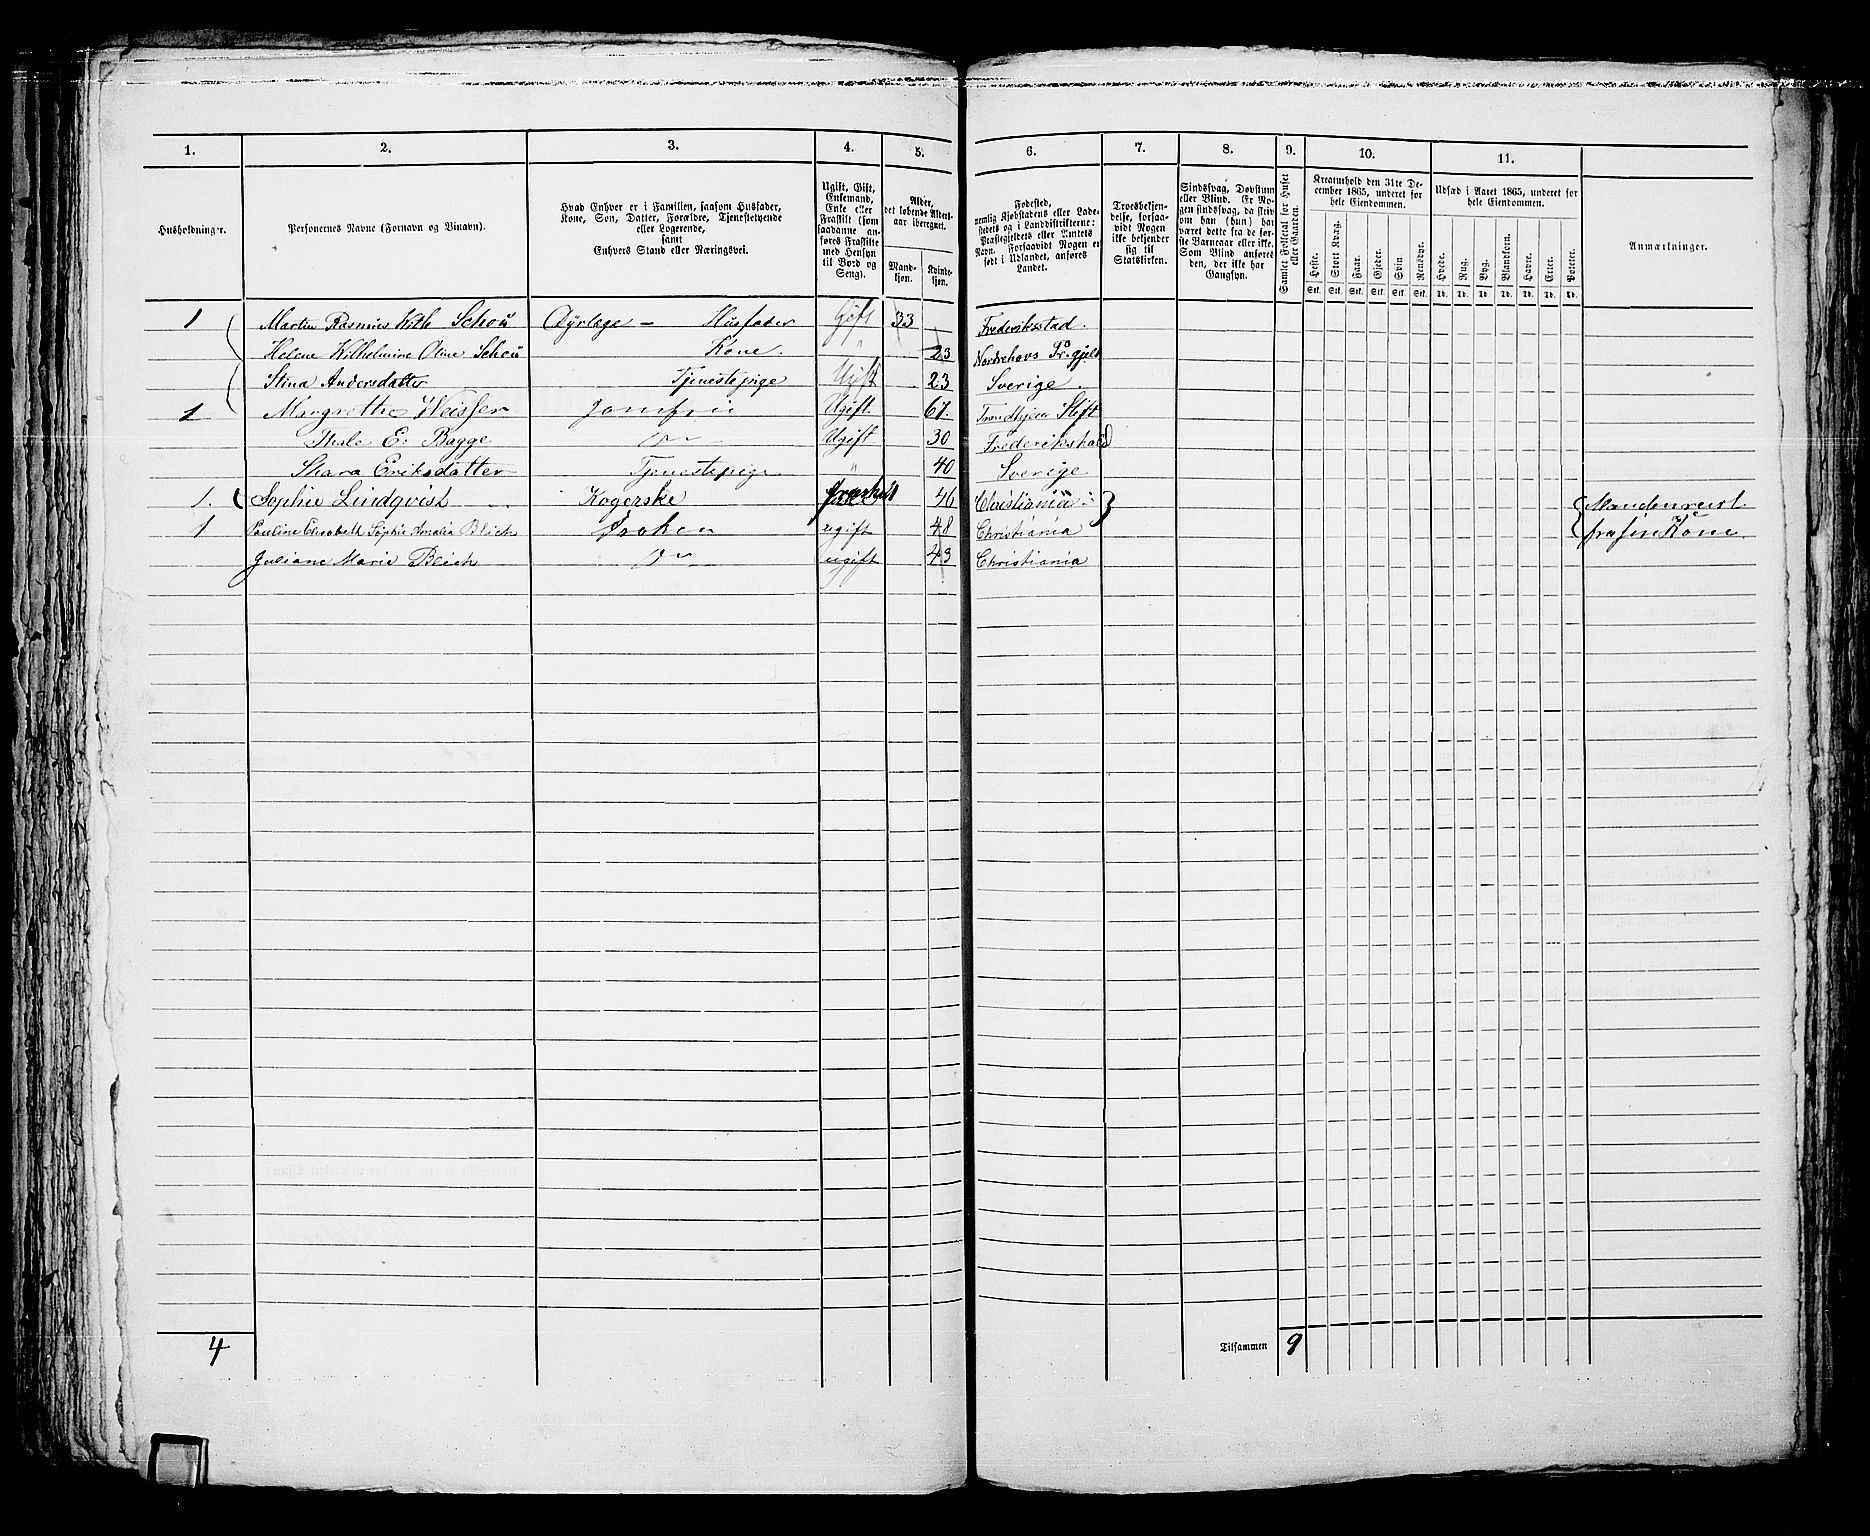 1. 2. 3. 4. 5. 6. 7. 8. 9. 10. 11.
Husholdninger.
Personernes Navne (Fornavn og Binavn).
Hvad Enhver er i Familien, saasom Husfader,
Kone, Søn, Datter, Forældre, Tjenestetyende
eller Logerende,
samt
Enhvers Stand eller Næringsvei.
Ugift, Gift,
Enkemand,
Enke eller
Fraskilt (som
saadanne an-
føres Fraskilte
med Hensyn
til Bord og
Seng).
Alder,
det løbende Alders-
aar iberegnet.
Mand-
kjøn.
Kvinde-
kjøn.
Fødested,
nemlig Kjøbstadens eller Lade-
stedets og i Landdistrikterne:
Præstegjeldets eller Amtets
Navn. Forsaavidt Nogen er
født i Udlandet, anføres
Landet.
Troesbekjen-
delse, forsaa-
vidt Nogen
ikke bekjender
sig til
Statskirken.
Sindssvag, Døvstum
eller Blind. Er No-
gen sindssvag, da skriv
om han (hun) har
været dette fra de før-
ste Barneaar eller ikke.
Som Blind anføres
den, der ikke har
Gangsyn.
Samlet Folketal for Huset
eller Gaarden.
Kreaturhold den 31te De-
cember 1865, underet for
hele Eiendommen.
Heste. Stort Kvæg. Faar. Gjeder. Svin Rensdyr.
Stk. Stk. Stk. Stk. Stk. Stk.
Udsæd i Aaret 1865, underet for
hele Eiendommen.
Hvede. Rug. Byg. Blandkorn. Havre. Erter. Poteter.
Td. Td. Td. Td. Td. Td. Td.
Anmærkninger.
1 Martin Rasmus With Schou Dyrlæge – Husfader Gift 33 Frederiksstad.
Helene Wilhelmine Oline Schou Kone. " 23 Nordrehovs Prgjeld
Stina Andersdatter Tjenestepige Ugift 23 Sverige.
1 Margrethe Weisser Jomfru Ugift. 67. Trondhjem Stift
Thale E. Bagge Do Ugift 30 Frederikshald
Skara Eriksdatter Tjenestepige " 40 Sverige
1. Sophie Lindqvist Kogerske 46 Christiania Manden reist
1 Pauline Elisabeth Sophie Amalia Blich Frøken ugift 48 Christiania fra sin Kone
Juliane Marie Blich Do ugift 43 Christiania
4 Tilsammen 9